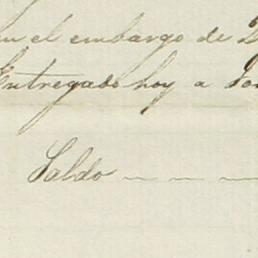 en el embargo de
Entregado hoy a
Saldo — — —